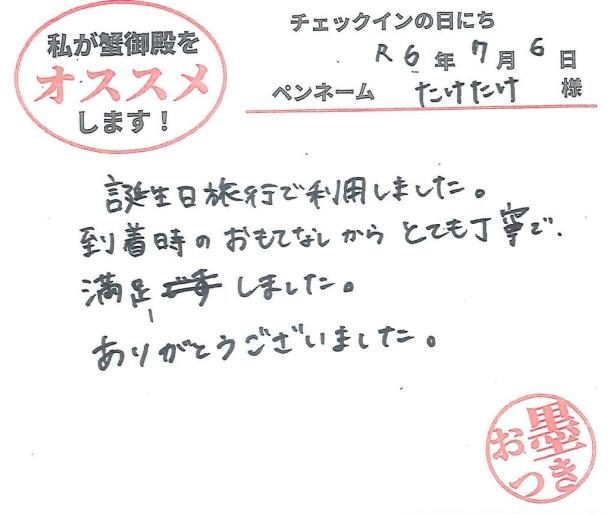 私が蟹御殿を
オススメ
します！
チェックインの日にち
R6年7月6日
ペンネーム たけたけ 様
誕生日旅行で利用しました。
到着時のおもてなしからとても丁寧で、
満足しました。
ありがとうございました。
お墨
つき